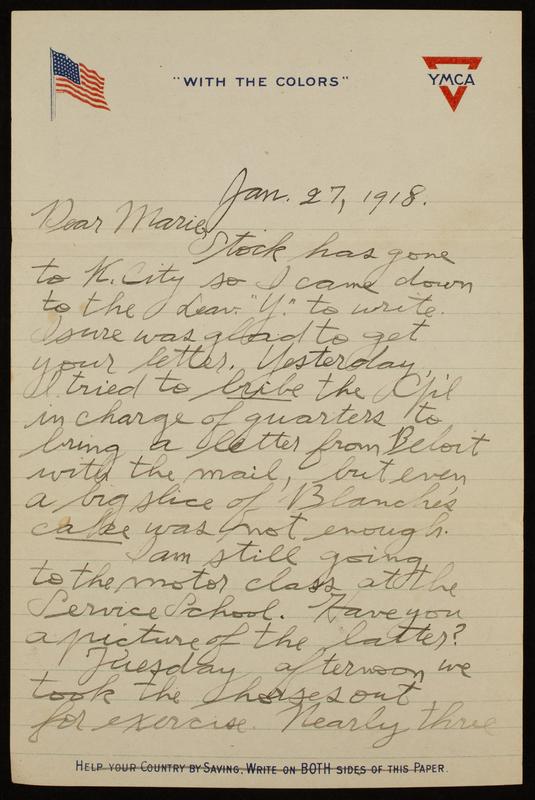 "WITH THE COLORS"
YMCA
Jan. 27, 1918.
Dear Marie,
Stock has gone
to K. City so I came down
to the Leav. "Y." to write.
I sure was glad to get
your letter. Yesterday,
I tried to bribe the Cp'l
in charge of quarters to
bring a letter from Beloit
with the mail, but even
a big slice of Blanche's
cake was not enough.
I am still going
to the motor class at the
Service School. Have you
a picture of the latter?
Tuesday afternoon we
took the horses out
for exercise. Nearly three
HELP YOUR COUNTRY BY SAVING. WRITE ON BOTH SIDES OF THIS PAPER.